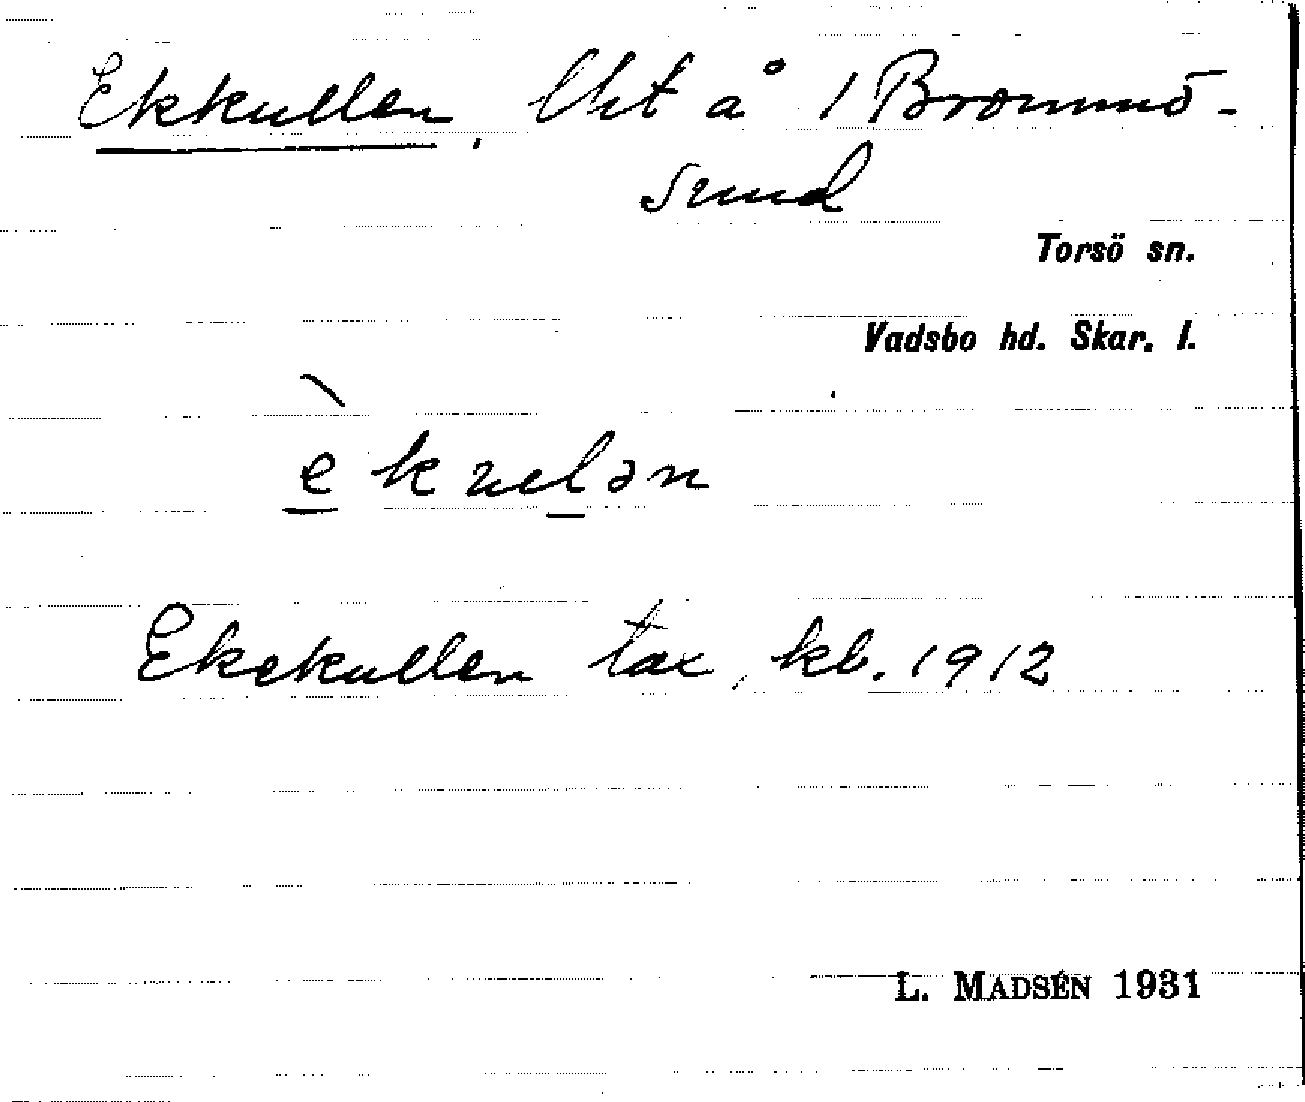 Ekkullen, lht å 1 Brommö-
sund
Torsö sn.
Vadsbo hd. Skar. l.
èkulən
Ekekullen tax. kb. 1912
L. MADSÉN 1931